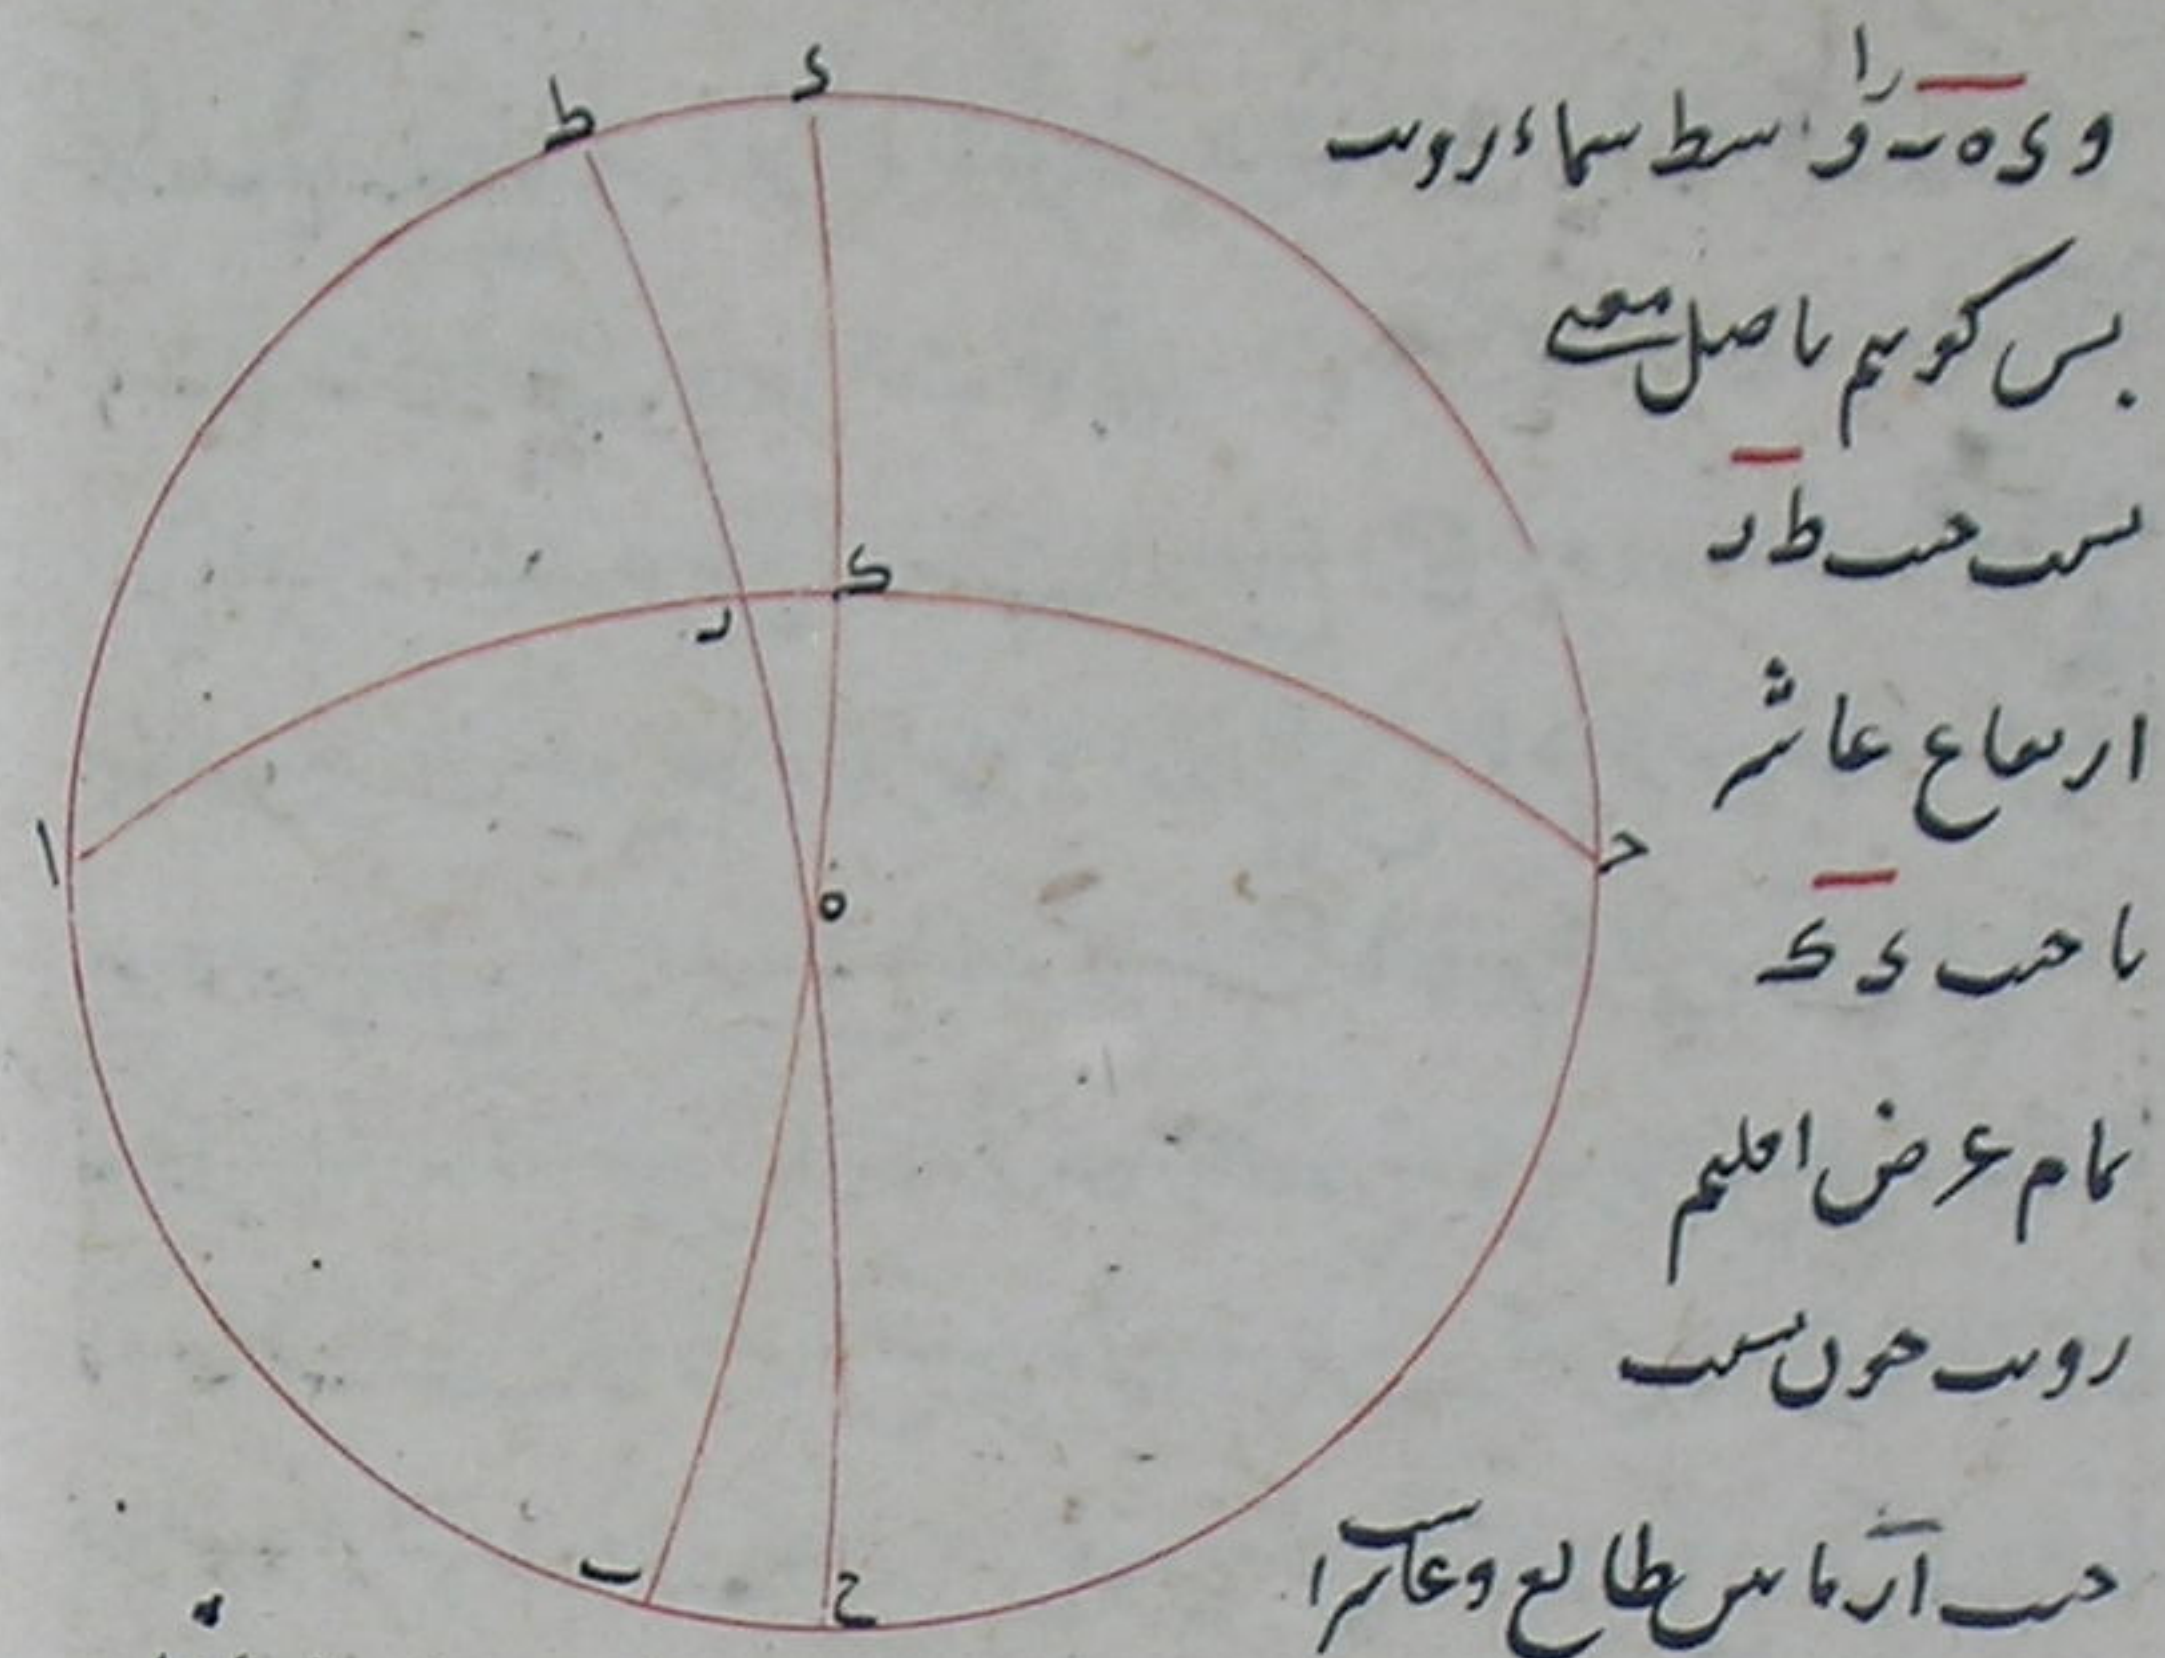 و ى ه ب را وسط سماء رویت
بس کوییم باصل مغنی
نسبت جیب ط ر
ارتفاع عاشر
با جیب ى ک
تمام عرض اقلیم
رویت چون نسبت
جیب ا ر مابین طالع و عاشر است
ى
ط
ک
ر
ا
ح
ه
ب
ح